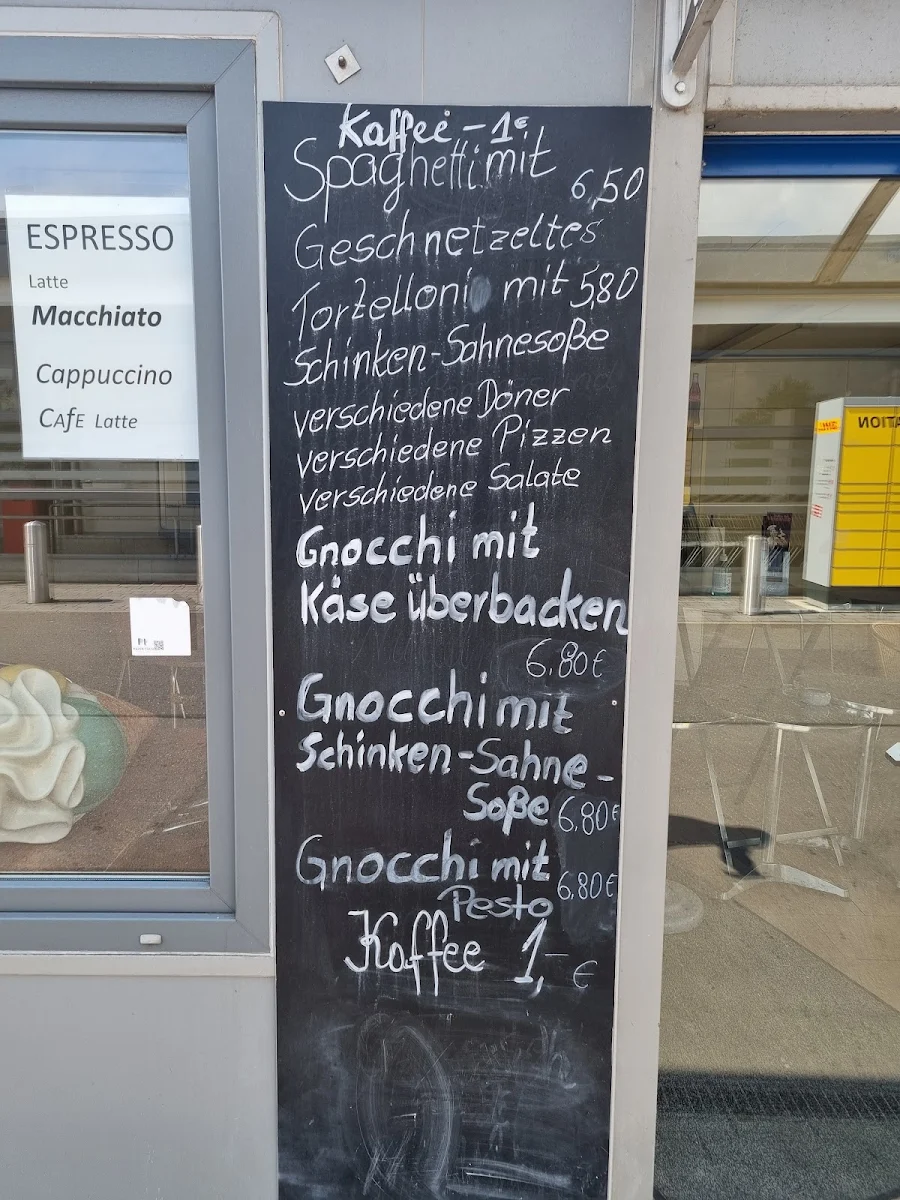 ESPRESSO
Latte
Macchiato
Cappuccino
CAfE Latte
Kaffee - 1€
Spaghetti mit 6,50
Geschnetzeltes
Tortelloni mit 5,80
Schinken-Sahnesoße
verschiedene Döner
verschiedene Pizzen
verschiedene Salate
Gnocchi mit
Käse überbacken
6.80€
Gnocchi mit
Schinken-Sahne-
Soße 6.80€
Gnocchi mit
Pesto 6.80€
Kaffee 1,- €